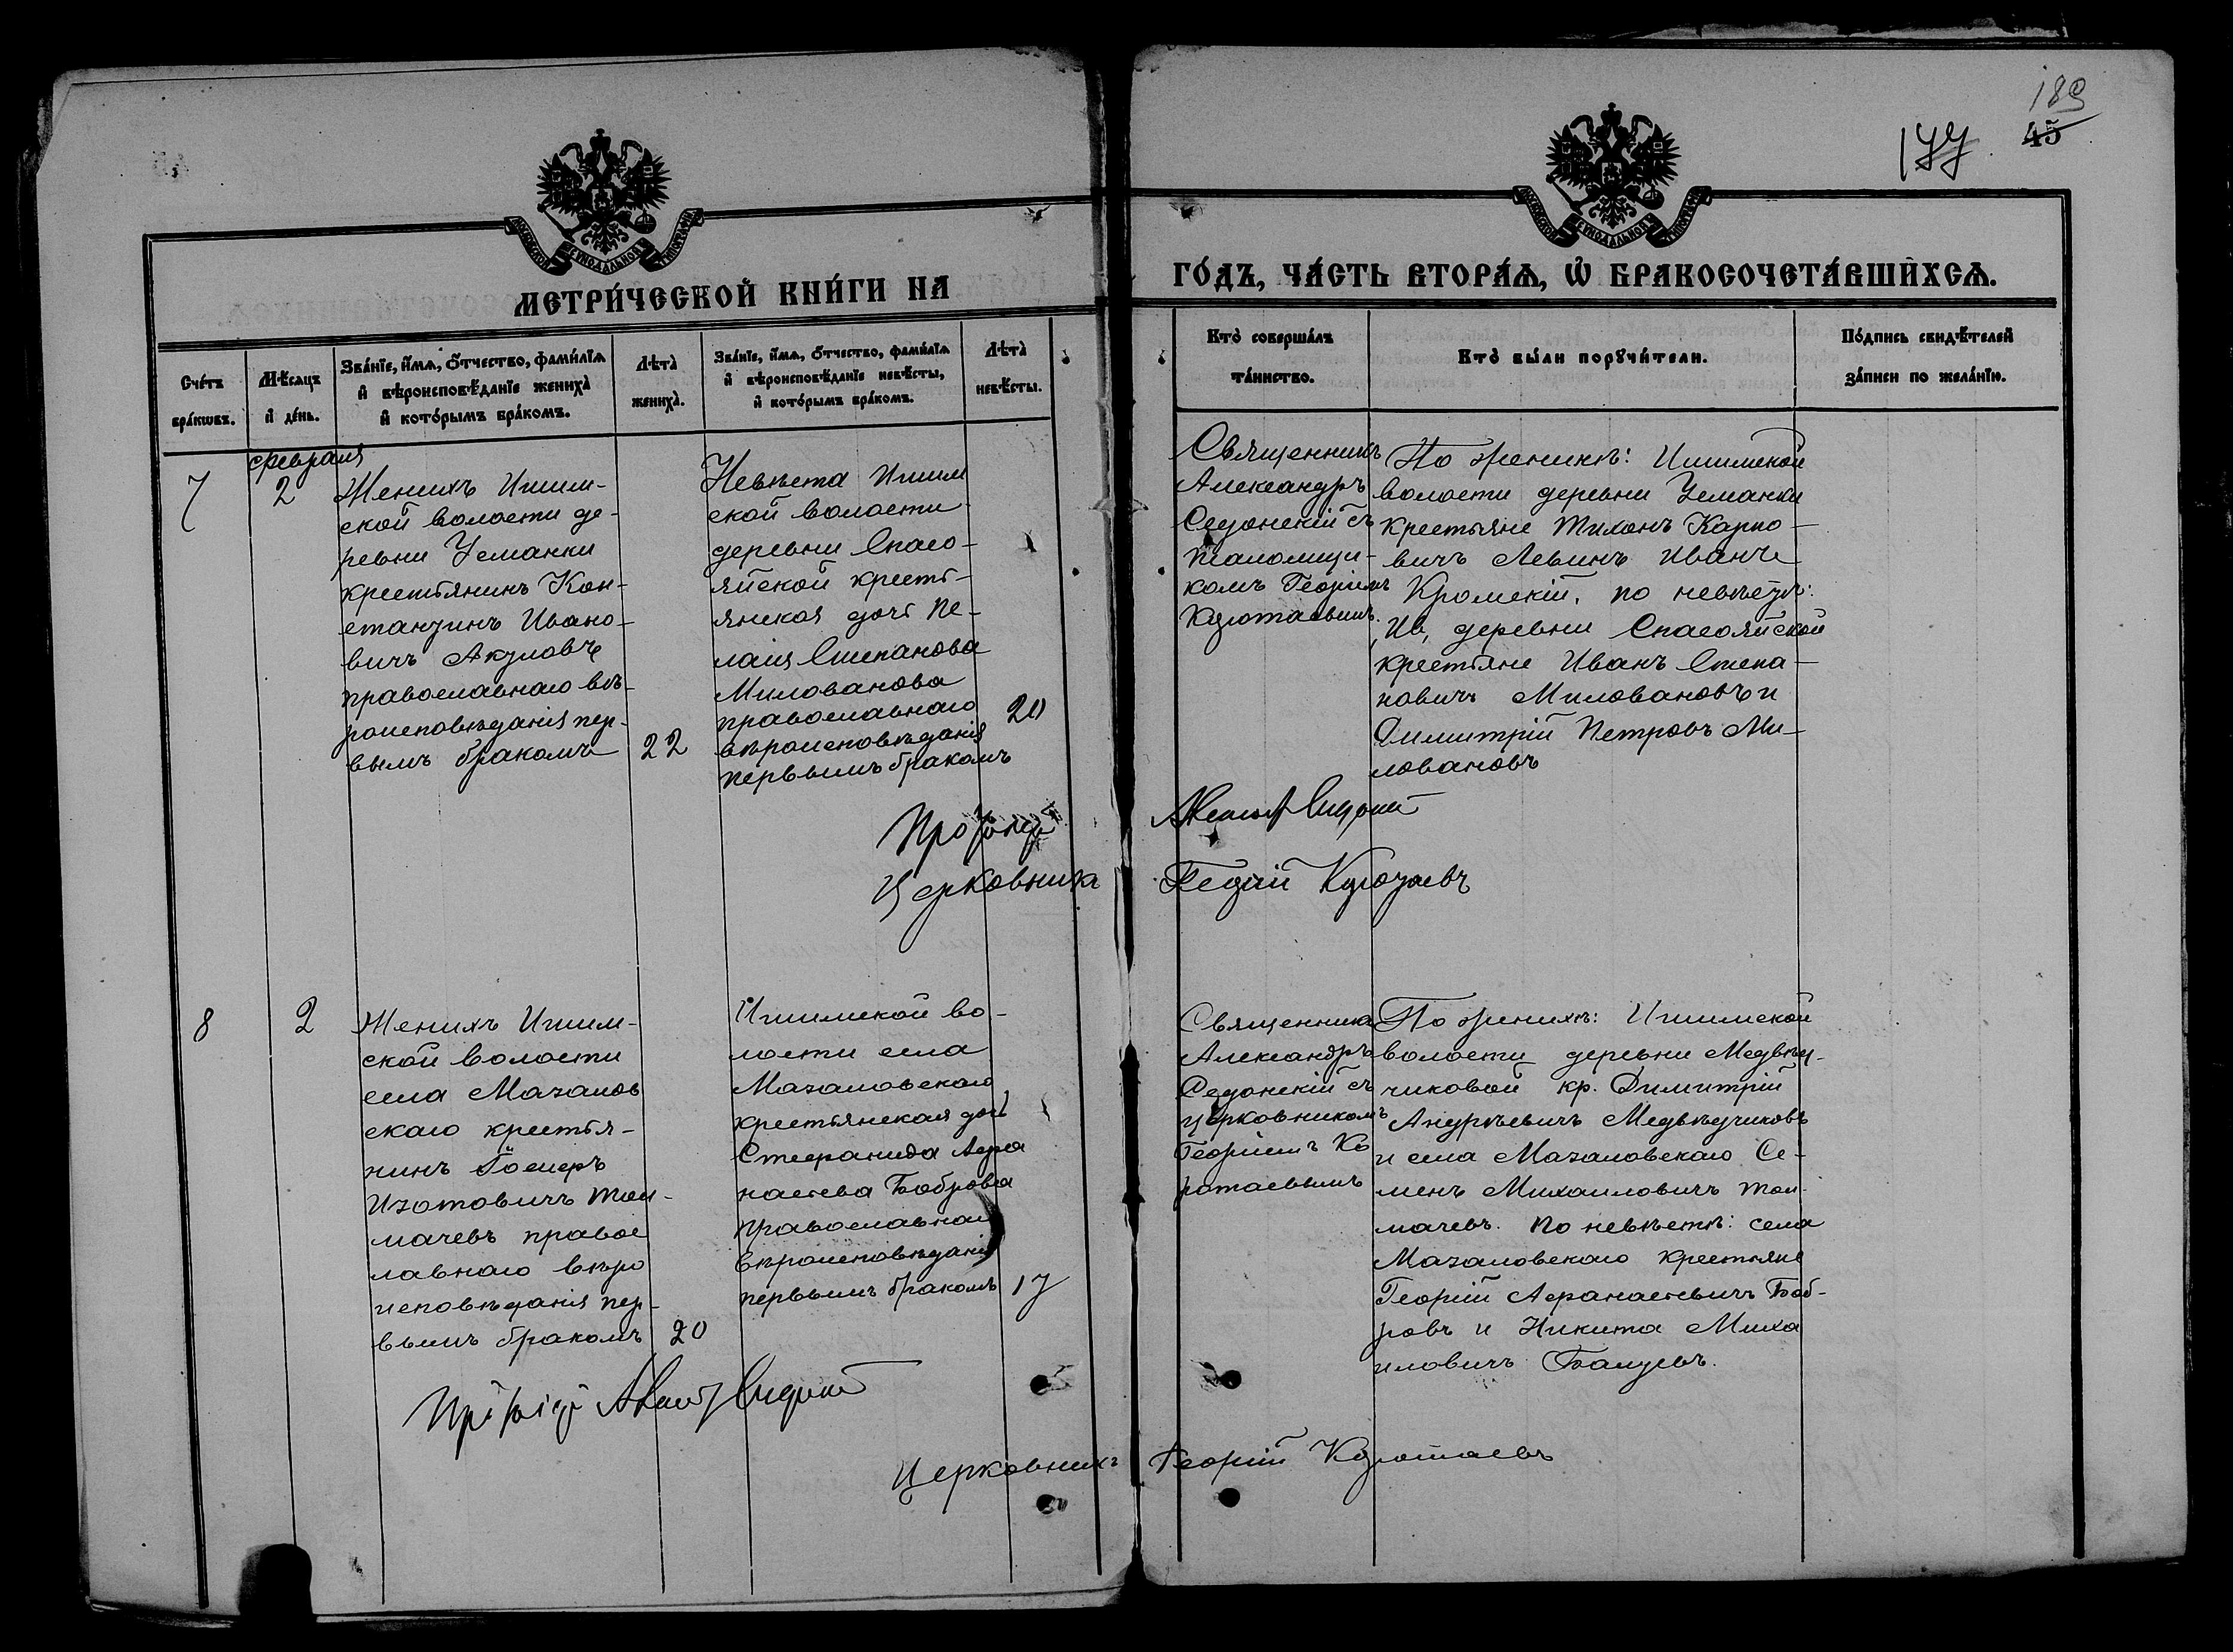 189
45
177
МОСКОВСКОЙ СѴНОДАЛЬНОЙ ТИПОГРАФІИ
МОСКОВСКОЙ СѴНОДАЛЬНОЙ ТИПОГРАФІИ
МЕТРИ́ЧЕСКОЙ КНИ́ГИ НА
ГО́ДЪ, ЧА́СТЬ ВТОРА́Ѧ, Ѡ҆ БРАКОСОЧЕТА́ВШИХСѦ.
Сче́тъ
бра́кѡвъ.
Мѣ́сѧцъ
и҆ де́нь.
Зва́нїе, и҆́мѧ, ѻ҆́тчество, фами́лїѧ
и҆ вѣроисповѣ́данїе жениха̀
и҆ кото́рымъ бра́комъ.
Лѣ́та̀
жениха̀.
Зва́нїе, и҆́мѧ, ѻ҆́тчество, фами́лїѧ
и҆ вѣроисповѣ́данїе невѣ́сты,
и҆ кото́рымъ бра́комъ.
Лѣ́та̀
невѣ́сты.
Кто̀ соверша́лъ
та́инство.
Кто̀ бы́ли порꙋчи́тели.
По́дпись свидѣ́телей
за́писи по жела́нїю.
7
февраля
2
Женихъ Ишим-
ской волости де-
ревни Усманки
крестьянинъ Кон-
стантинъ Ивано-
вичъ Акуловъ
православнаго вѣ-
роисповѣданія пер-
вымъ бракомъ
22
Невѣста Ишим
ской волости
деревни Спасо-
яйской кресть-
янская дочь Пе-
лагія Степанова
Милованова
православнаго
вѣроисповѣданія
первымъ бракомъ
20
Священникъ
Александръ
Сидонскій съ
псаломщи-
комъ Георгіемъ
Коротаевымъ.
По женихѣ: Ишимской
волости деревни Усманки
крестьяне Тихонъ Карпо-
вичъ Левинъ Иванъ
Кромскій. по невѣстѣ:
Иш, деревни Спасояйской
крестьяне Иванъ Степа-
новичъ Миловановъ и
Димитрій Петровъ Ми-
ловановъ
Протоіерей
Александръ Сидонскій
Церковникъ
Георгій Коротаевъ
8
2
Женихъ Ишим-
ской волости
села Мазалов
скаго крестья-
нинъ
Изотовичъ Тол-
мачевъ правос
лавнаго вѣро
исповѣданія пер-
вымъ бракомъ
20
Ишимской во-
лости села
Мазаловскаго
крестьянская дочь
Стефанида Афа
насьева Боброва
православнаго
вѣроисповѣданія
первымъ бракомъ
17
Священникъ
Александръ
Сидонскій съ
церковникомъ
Георгіемъ Ко
ротаевымъ
По женихѣ: Ишимской
волости деревни Медвѣд-
чиковой кр. Димитрій
Андрѣевичъ Медвѣдчиковъ
и села Мазаловскаго Се-
менъ Михаиловичъ Тол-
мачевъ. По невѣстѣ: села
Мазаловскаго крестьяне
Георгій Афанасьевичъ Боб-
ровъ и Никита Миха
иловичъ
Протоіерей Александръ Сидонскій
Церковникъ
Георгій Коротаевъ